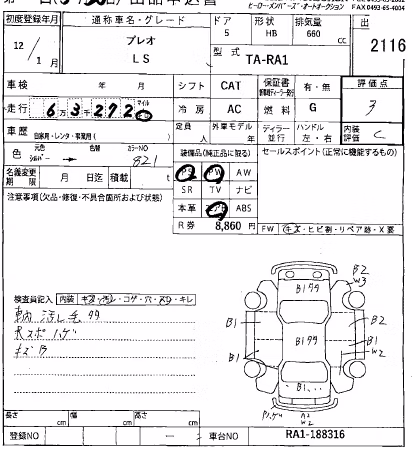 初度登録年月 通称車名・グレード ドア 形状 排気量 出
12/1月 プレオ LS 5 HB 660 cc 2116
型式 TA-RA1
車検 年 月 シフト CAT 保証書 有・無 評価点
走行 6万3千272 マイル km 冷房 AC 燃料 G 3
車歴 自家用・レンタ・事業用( ) 定員 人 外車モデル 年 ディーラー 並行 ハンドル 左・右 内装評価 C
色 元色 シルバー → 色替 カラーNO 821 装備品(純正品に限る) セールスポイント(正常に機能するもの)
名義変更期限 月 日迄 積載 t PS PW AW
注意事項(欠品・修復・不具合箇所および状態) SR TV ナビ
本革 エアB ABS
R券 8,860円 FW キズ・ヒビ割・リペア跡・X要
検査員記入 内装 キズ・汚レ・コゲ・穴・スレ・キレ
車内汚し毛99
Rスポハゲ
キズB
B2
W3
B199
B1
B199
B2
B1
W2
B1
ハゲ
A2
W2
長さ cm 幅 cm 高さ cm
登録NO ― 車台NO RA1-188316